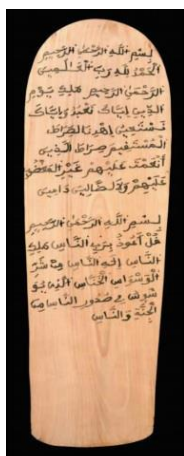 بسم الله الرحمن الرحيم
الحمد لله رب العالمين
الرحمن الرحيم ملك يوم
الدين اياك نعبد واياك
نستعين اهدنا الصراط
المستقيم صراط الذين
انعمت عليهم غير المغضوب
عليهم ولا الضالين امين
بسم الله الرحمن الرحيم
قل اعوذ برب الناس ملك
الناس اله الناس من شر
الوسواس الخناس الذي يو
سوس في صدور الناس من
الجنة والناس